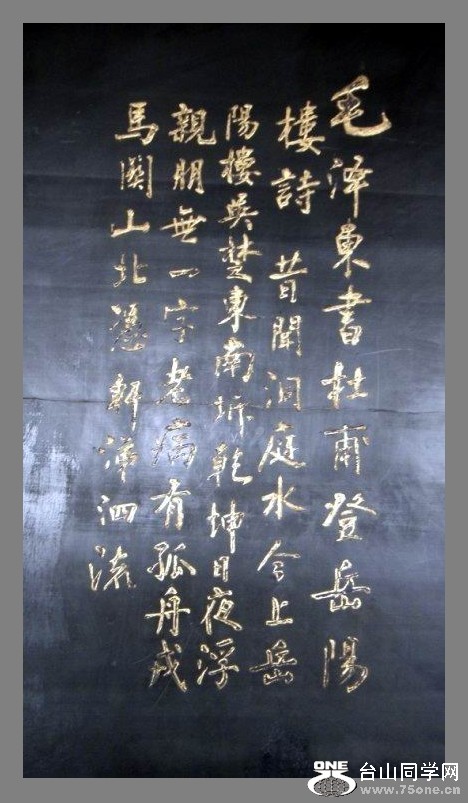 毛泽東書杜甫登岳陽
樓詩 昔聞洞庭水今上岳
陽樓吳楚東南坼乾坤日夜浮
親朋無一字老病有孤舟戎
馬關山北憑軒涕泗流
ONE
台山同学网
www.75one.cn